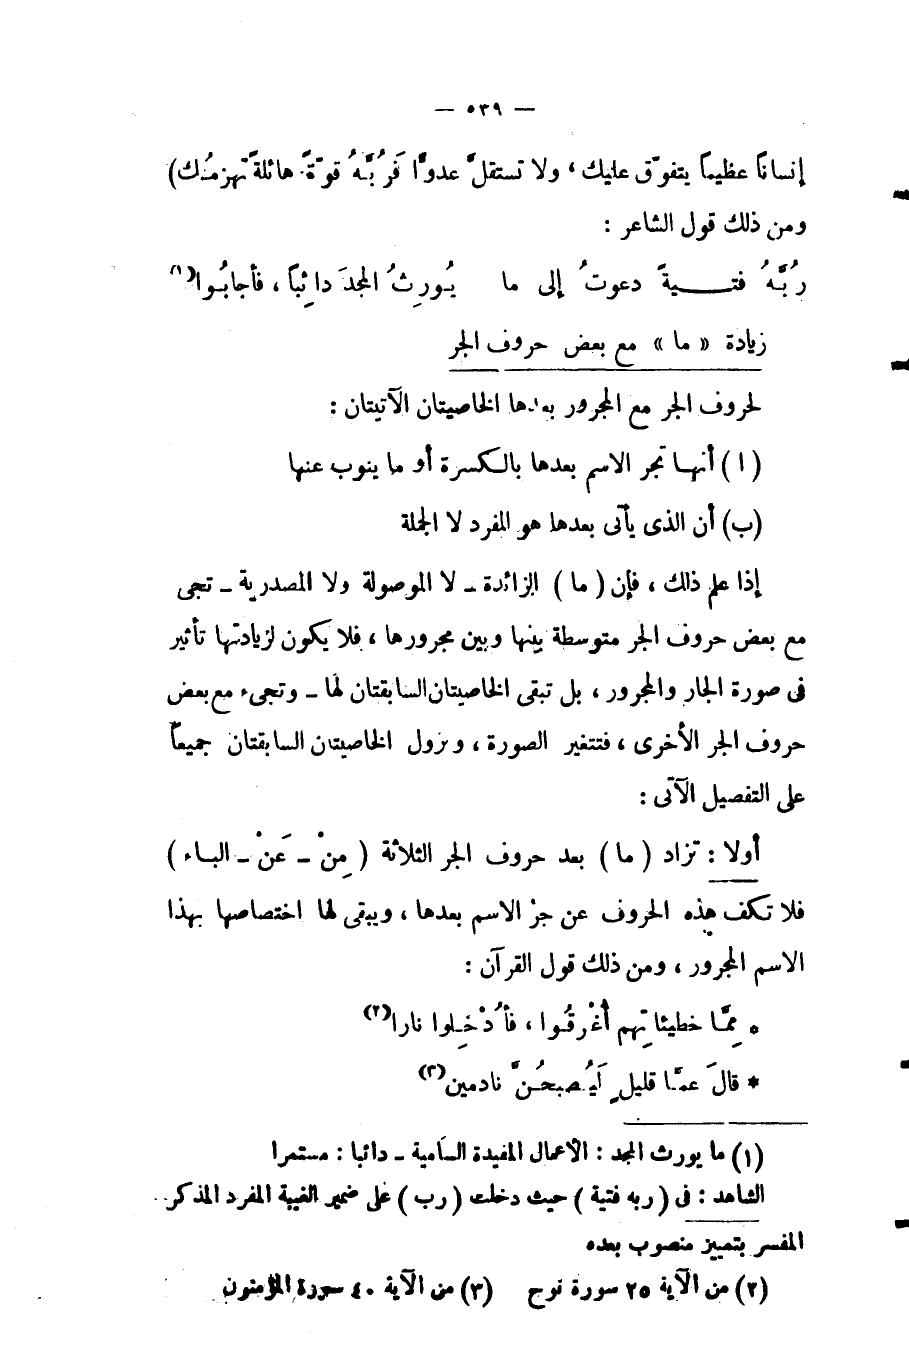 — ٥٣٩ —
إنسانًا عظيمًا يتفوّق عليك ، ولا تستقلَّ عدوًّا فَرُبَّهُ قوّةً هائلةً تهزمُك)
ومن ذلك قول الشاعر :
رُبَّهُ فتـــيةً دعوتُ إلى ما يُورِثُ المجدَ دائِبًا ، فأجابُوا(١)
زيادة « ما » مع بعض حروف الجر
لحروف الجر مع المجرور بعدها الخاصيتان الآتيتان :
( ا ) أنهـا تجر الاسم بعدها بالـكسرة أو ما ينوب عنها
(ب) أن الذى يأتى بعدها هو المفرد لا الجملة
إذا علم ذلك ، فإن ( ما ) الزائدة ـ لا الموصولة ولا المصدرية ـ تجى
مع بعض حروف الجر متوسطة بينها وبين مجرورها ، فلا يكون لزيادتها تأثير
فى صورة الجار والمجرور ، بل تبقى الخاصيتان السابقتان لها ـ وتجىء مع بعض
حروف الجر الأخرى ، فتتغير الصورة ، وتزول الخاصيتان السابقتان جميعاً
على التفصيل الآتى :
أولا : تزاد ( ما ) بعد حروف الجر الثلاثة ( مِنْ ـ عَنْ ـ البـاء )
فلا تـكف هذه الحروف عن جرِّ الاسم بعدها ، ويبقى لها اختصاصها بهذا
الاسم المجرور ، ومن ذلك قول القرآن :
* مِمَّا خطيئاتِهِم أُغْرِقُوا ، فأُدْخِلوا نارا(٢)
* قالَ عمَّا قليلٍ لَيُصبحُنَّ نادمين(٣)
(١) ما يورث المجد : الأعمال المفيدة السَّامية ـ دائبا : مستمرا
الشاهد : فى ( ربه فتية ) حيث دخلت ( رب ) على ضمير الغيبة المفرد المذكر
المفسر بتمييز منصوب بعده
(٢) من الآية ٢٥ سورة نوح (٣) من الآية ٤٠ سورة المؤمنون